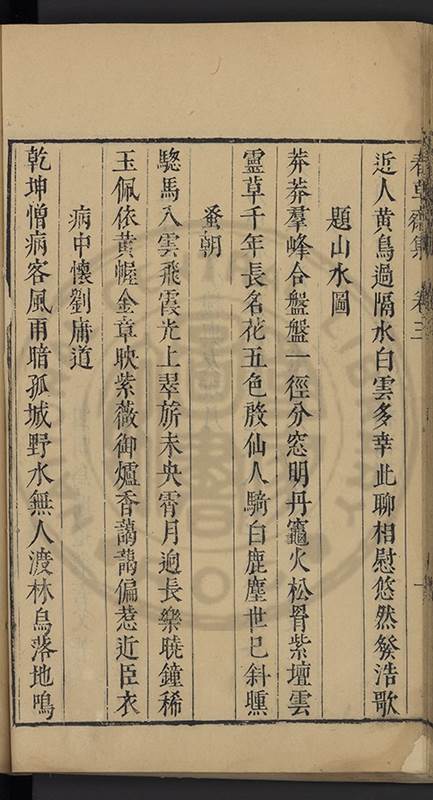 春草齋集 卷三
近人黄鳥過隔水白雲多幸此聊相慰悠然發浩歌
題山水圖
莽莽羣峰合盤盤一徑分窓明丹竈火松骨紫壇雲
靈草千年長名花五色殷仙人騎白鹿塵世已斜曛
蚤朝
驄馬入雲飛霞光上翠旂未央霄月迥長樂曉鐘稀
玉佩依黄幄金章映紫薇御爐香藹藹偏惹近臣衣
病中懷劉庸道
乾坤憎病客風雨暗孤城野水無人渡林烏落地鳴